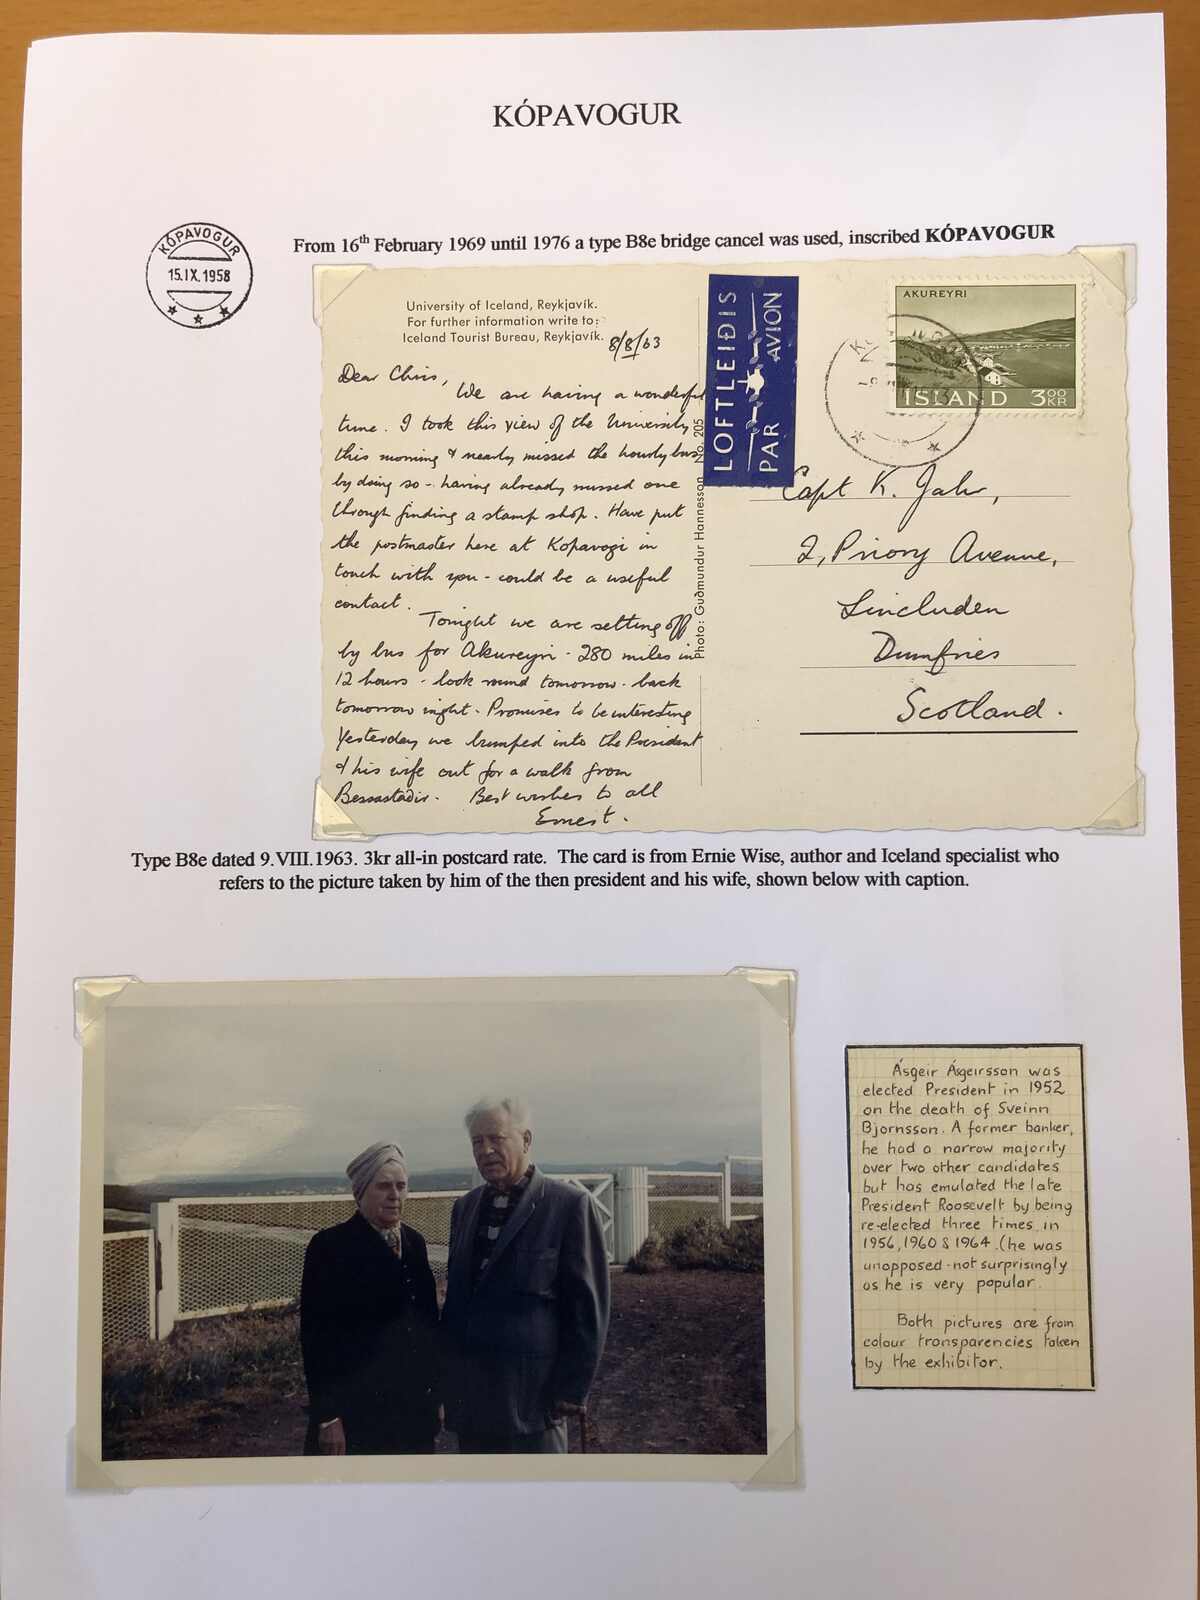 KÓPAVOGUR
KÓPAVOGUR
15.IX.1958
From 16th February 1969 until 1976 a type B8e bridge cancel was used, inscribed KÓPAVOGUR
University of Iceland, Reykjavík.
For further information write to:
Iceland Tourist Bureau, Reykjavík.
8/8/63
Dear Chris,
We are having a wonderful
time. I took this view of the University
this morning & nearly missed the hourly bus
by doing so - having already missed one
through finding a stamp shop. Have put
the postmaster here at Kopavogi in
touch with you - could be a useful
contact.
Tonight we are setting off
by bus for Akureyri - 280 miles in
12 hours - look round tomorrow - back
tomorrow night. Promises to be interesting
Yesterday we bumped into the President
& his wife out for a walk from
Bessastadir. Best wishes to all
Ernest.
Photo: Guðmundur Hannesson No. 205
LOFTLEIÐIS
PAR AVION
AKUREYRI
ISLAND 3 00 KR
Capt K. Jahr,
2, Priory Avenue,
Lincluden
Dumfries
Scotland.
Type B8e dated 9.VIII.1963. 3kr all-in postcard rate. The card is from Ernie Wise, author and Iceland specialist who
refers to the picture taken by him of the then president and his wife, shown below with caption.
Ásgeir Ásgeirsson was
elected President in 1952
on the death of Sveinn
Bjornsson. A former banker,
he had a narrow majority
over two other candidates
but has emulated the late
President Roosevelt by being
re-elected three times in
1956, 1960 & 1964. (he was
unopposed - not surprisingly
as he is very popular.
Both pictures are from
colour transparencies taken
by the exhibitor.